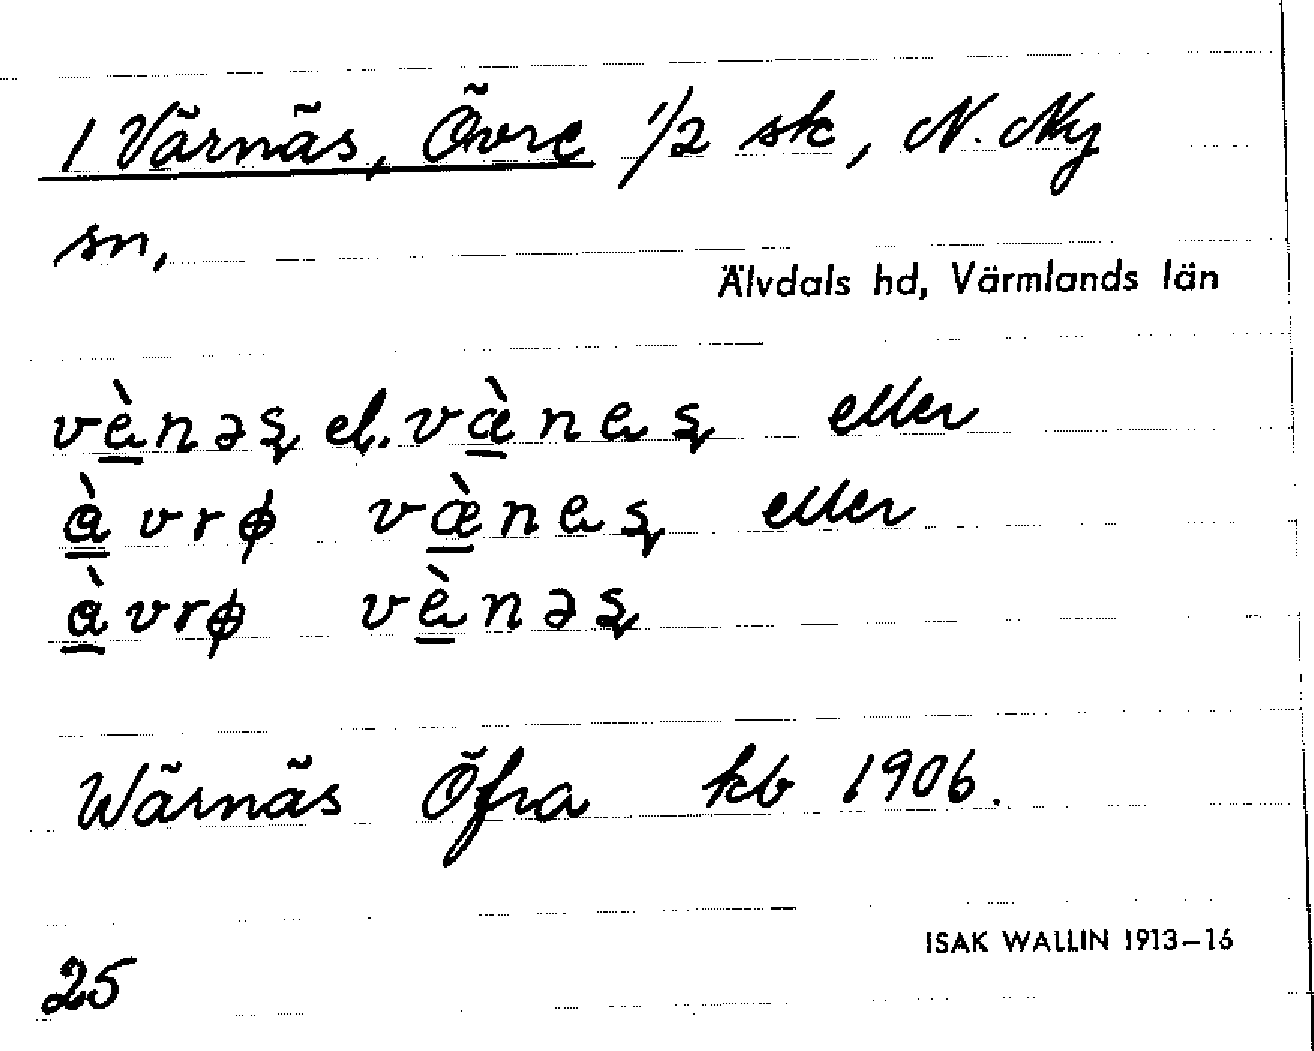 1 Värnäs, Övre 1/2 sk, N. Ny
sn,
Älvdals hd, Värmlands län
vè̱nəʂ el. væ̱̀neʂ eller
à̱vrφ væ̱̀neʂ eller
à̱vrφ vè̱nəʂ
Wärnäs Öfra kb 1906.
ISAK WALLIN 1913–16
25